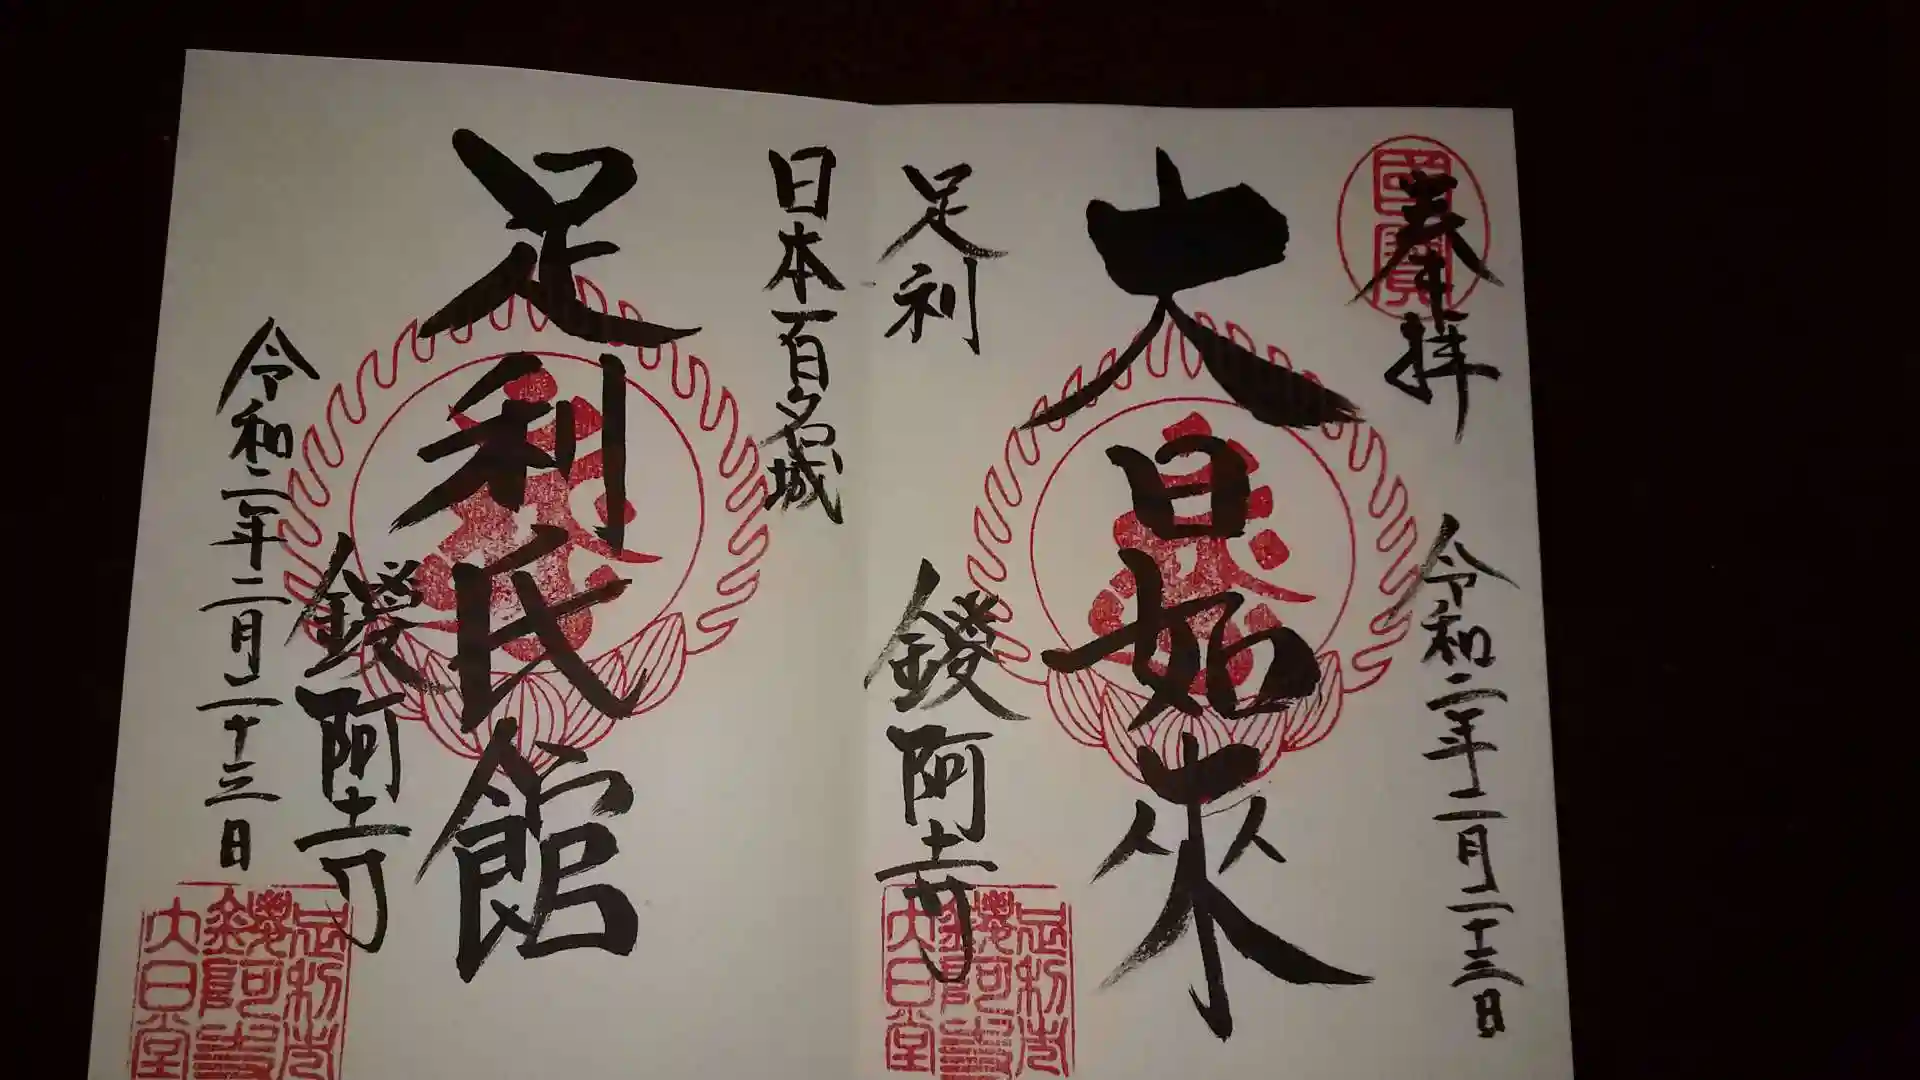 奉拝
令和二年二月二十三日
大日如来
足利
鑁阿寺
日本百名城
足利氏館
鑁阿寺
令和二年二月二十三日
國寶
足利市
鑁阿寺
大日堂
足利市
鑁阿寺
大日堂